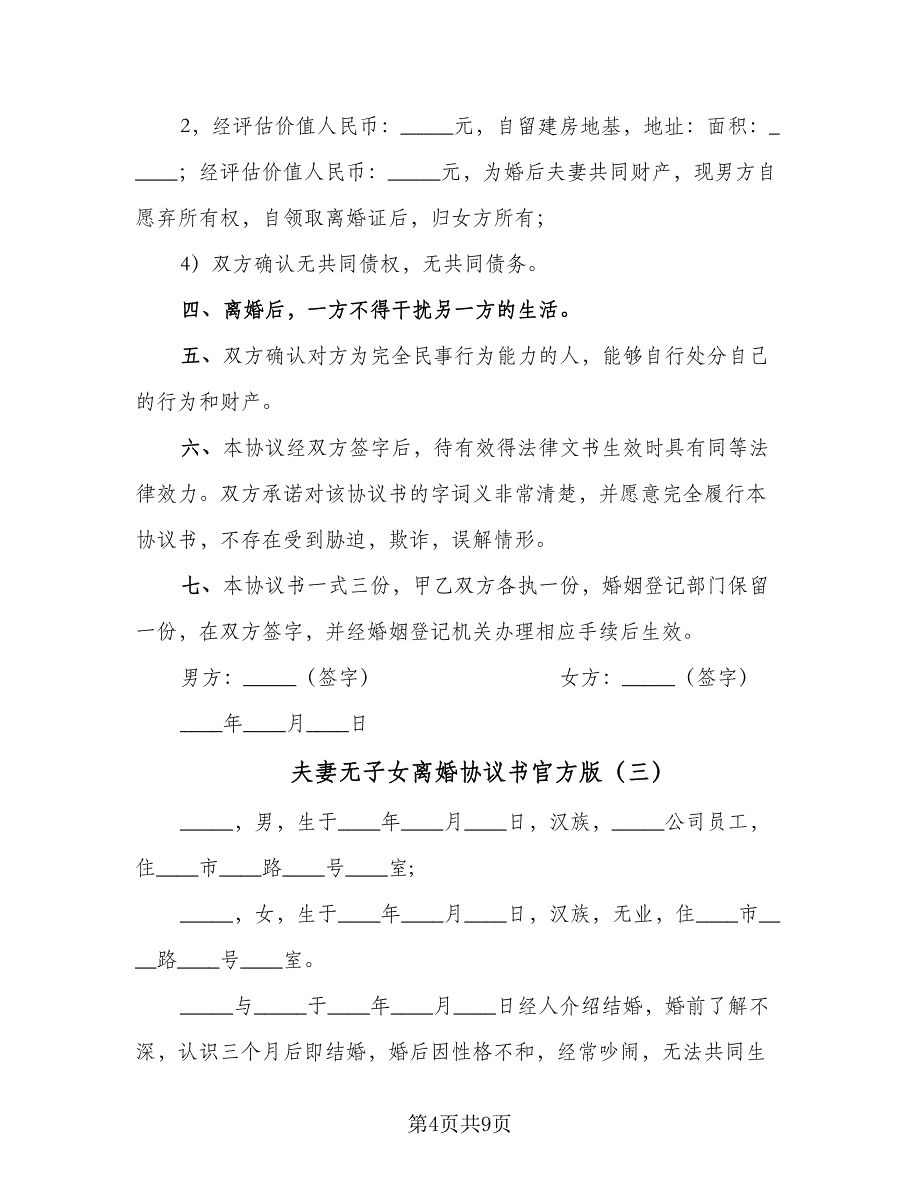 2，经评估价值人民币：_____元，自留建房地基，地址：面积：_
____；经评估价值人民币：_____元，为婚后夫妻共同财产，现男方自
愿弃所有权，自领取离婚证后，归女方所有；
4）双方确认无共同债权，无共同债务。
四、离婚后，一方不得干扰另一方的生活。
五、双方确认对方为完全民事行为能力的人，能够自行处分自己
的行为和财产。
六、本协议经双方签字后，待有效得法律文书生效时具有同等法
律效力。双方承诺对该协议书的字词义非常清楚，并愿意完全履行本
协议书，不存在受到胁迫，欺诈，误解情形。
七、本协议书一式三份，甲乙双方各执一份，婚姻登记部门保留
一份，在双方签字，并经婚姻登记机关办理相应手续后生效。
男方：_____（签字） 女方：_____（签字）
____年____月____日
夫妻无子女离婚协议书官方版（三）
_____，男，生于____年____月____日，汉族，_____公司员工，
住____市____路____号____室；
_____，女，生于____年____月____日，汉族，无业，住____市__
__路____号____室。
_____与_____于____年____月____日经人介绍结婚，婚前了解不
深，认识三个月后即结婚，婚后因性格不和，经常吵闹，无法共同生
第4页共9页